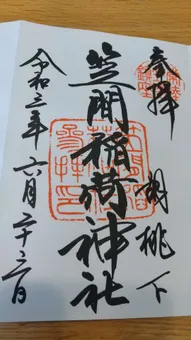 参拝
胡桃下
笠間稲荷神社
令和三年六月二十三日